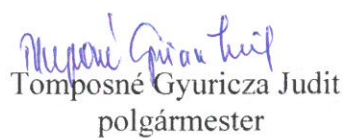 Tomposné Gyuricza Judit
polgármester